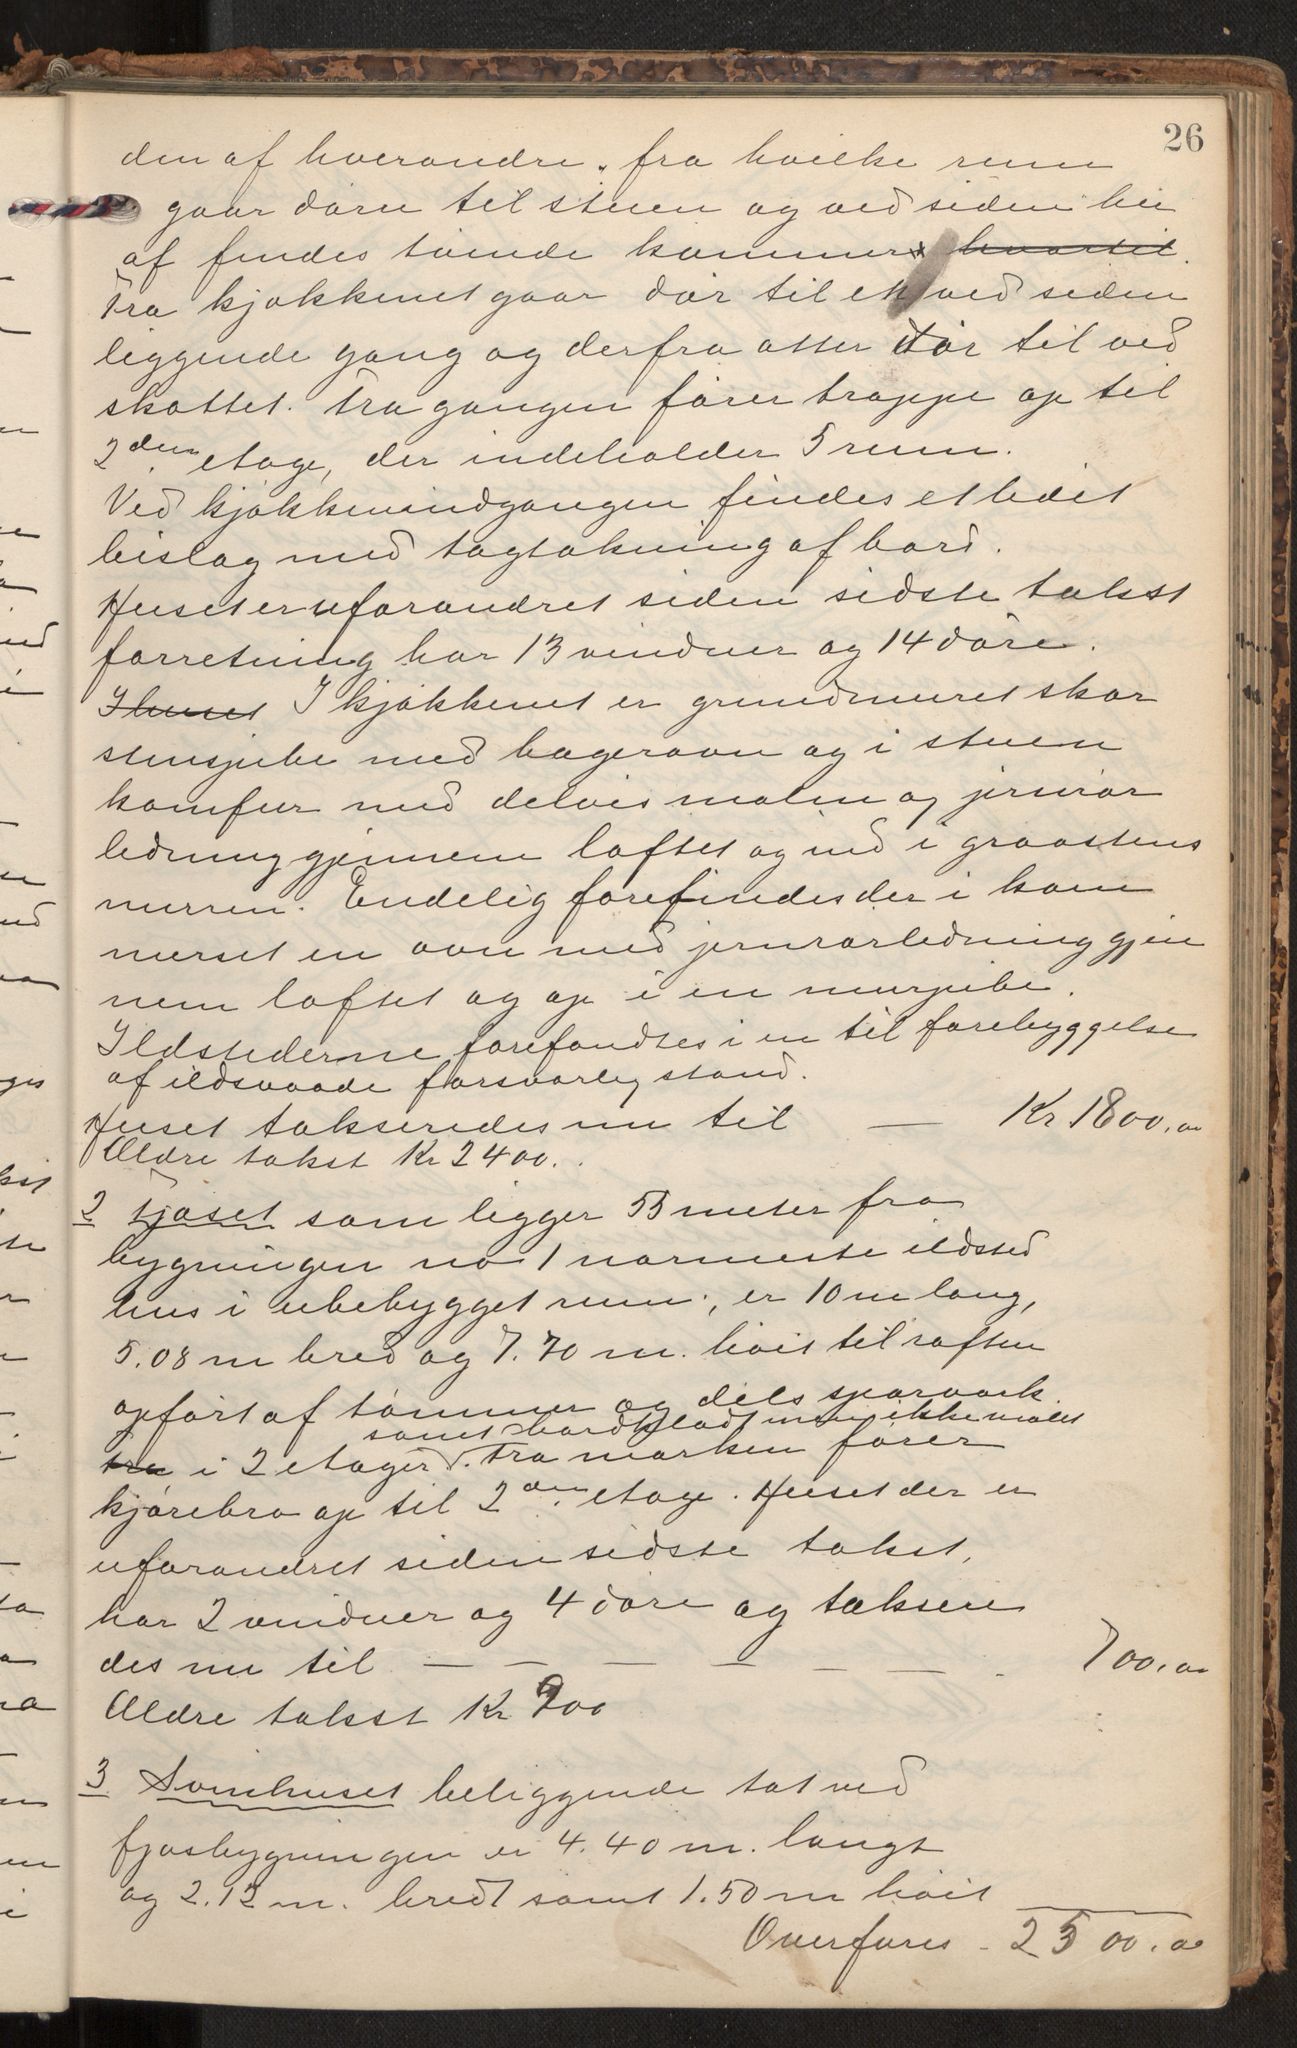 26
den af hverandre, fra hvilke rum
gaar døre til stuen og ved siden her
af findes tvende kammers hvortil.
Fra kjøkkenet gaar dør til en ved siden
liggende gang og derfra atter dør til ved
skottet. Fra gangen fører trappe op til
2den etage, der indeholder 5 rum.
Ved kjøkkenindgangen findes et lidet
bislag med tagtækning af bord.
Huset er uforandret siden sidste takst
forretning har 13 vinduer og 14 døre.
I huset I kjøkkenet er grundmuret skor
stenspibe med bagerovn og i stuen
komfur med delvis malm og jernrør
ledning gjennem loftet og ind i graastens
murren. Endelig forefindes der i kam
merset en ovn med jernrørledning gjen
nem loftet og op i en murpibe.
Ildstederne forefandtes i en til forebyggelse
af ildsvaade forsvarlig stand.
Huset takseredes nu til — Kr 1800.00
Ældre takst Kr 2400.
2 Fjøset som ligger 55 meter fra
bygningen no 1 nærmeste ildsted
hus i ubebygget rum, er 10 m lang,
5.08 m bred og 7.70 m. høit til raften
opført af tømmer og dels sparværk
samt bordklædt men ikke malet
fra i 2 etager. Fra marken fører
kjørebro op til 2den etage. Huset der er
uforandret siden sidste takst,
har 2 vinduer og 4 døre og taksere
des nu til — — — — — — 700.00
Ældre takst Kr 900
3 Svinhuset beliggende tæt ved
fjøsbygningen er 4.40 m. langt
og 2.12 m. bredt samt 1.50 m høit
Overføres - 2500.00